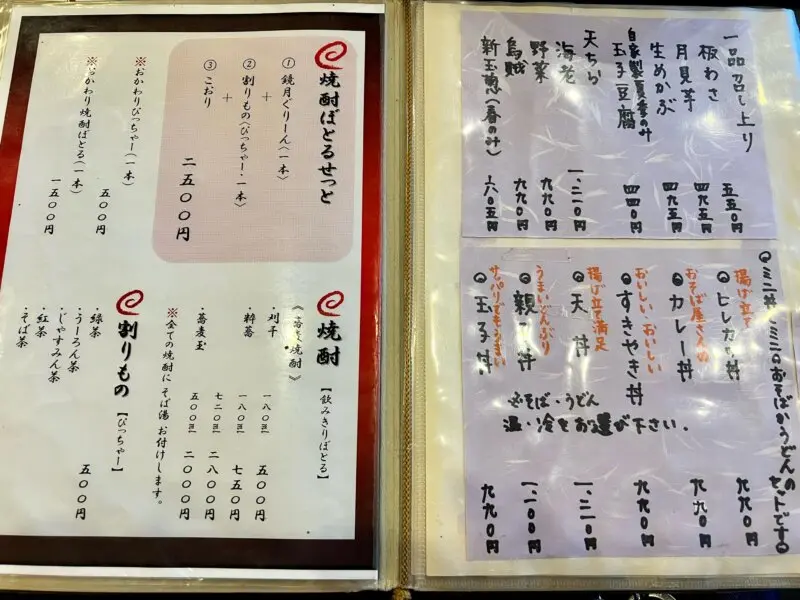 一品召し上り
板わさ 五五〇円
月見芋 四九五円
生めかぶ 四九五円
自家製夏季のみ
玉子豆腐 四四〇円
天ちら
海老 一、二一〇円
野菜 九九〇円
烏賊 九九〇円
新玉葱(春のみ) 六〇五円
ミニ丼とミニのおそばかうどんのセットです
揚げ立て
ヒレカツ丼 九九〇円
おそば屋さんの
カレー丼 九九〇円
おいしいおいしい
すきやき丼 九九〇円
揚げ立て満足
天丼 一、二一〇円
うまいどんぶり
親子丼 一、一〇〇円
サッパリでもうまい
玉子丼 九九〇円
※そば・うどん
温・冷をお選び下さい。
焼酎ぼとるせっと
①鏡月ぐりーん〈一本〉
+
②割りもの〈ぴっちゃー・一本〉
+
③こおり
二五〇〇円
※おかわりぴっちゃー〈一本〉 五〇〇円
※おかわり焼酎ぼとる〈一本〉 一五〇〇円
焼酎【飲みきりぼとる】
《蕎麦焼酎》
・刈干 一八〇㎖ 五〇〇円
・粋蕎 一八〇㎖ 七五〇円
七二〇㎖ 二八〇〇円
・蕎麦玉 五〇〇㎖ 二〇〇〇円
※全ての焼酎にそば湯お付けします。
割りもの【ぴっちゃー】
五〇〇円
・緑茶
・うーろん茶
・じゃすみん茶
・紅茶
・そば茶